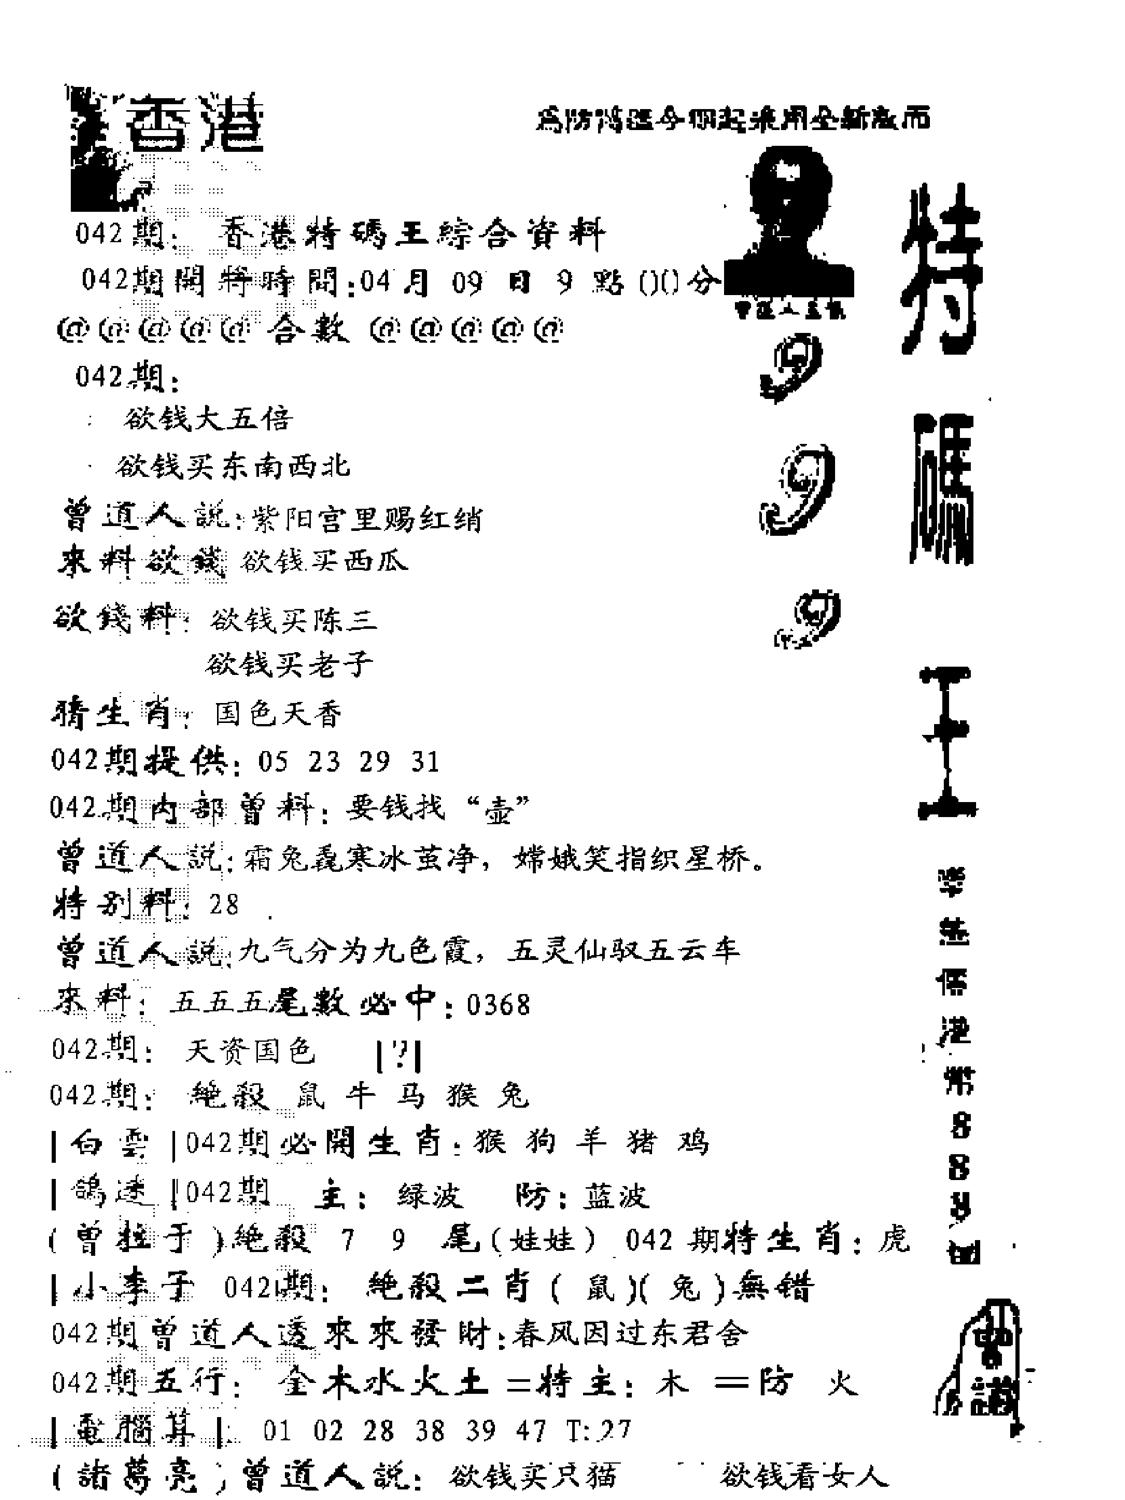 香港
042期: 香港特碼王綜合資料
042期開將時間:04月 09 日 9 點 00分
@ @ @ @ @ 合數 @ @ @ @ @
042期:
欲钱大五倍
欲钱买东南西北
曾道人説:紫阳宫里赐红绡
來料欲錢 欲钱买西瓜
欲錢料: 欲钱买陈三
欲钱买老子
猜生肖: 国色天香
042期提供: 05 23 29 31
042期内部曾料: 要钱找 “壶”
曾道人説:霜兔毳寒冰茧净，嫦娥笑指织星桥。
特别料: 28
曾道人説:九气分为九色霞，五灵仙驭五云车
來料: 五五五尾數必中: 0368
042期: 天资国色 |?|
042期: 絶殺 鼠 牛 马 猴 兔
|白雲|042期必開生肖: 猴 狗 羊 猪 鸡
|鴿迷|042期 主: 绿波 防: 蓝波
(曾拉于)絶殺 7 9 尾(娃娃) 042 期特生肖: 虎
|小李子 042期: 絶殺二肖( 鼠)( 兔 )無错
042期曾道人透來來發財:春风因过东君舍
042期五行: 金木水火土=特主: 木 =防 火
|電腦算|: 01 02 28 38 39 47 T:27
(諸葛亮)曾道人説: 欲钱买只猫 欲钱看女人
9
9
9
特
碼
王
港
幣
8
8
8